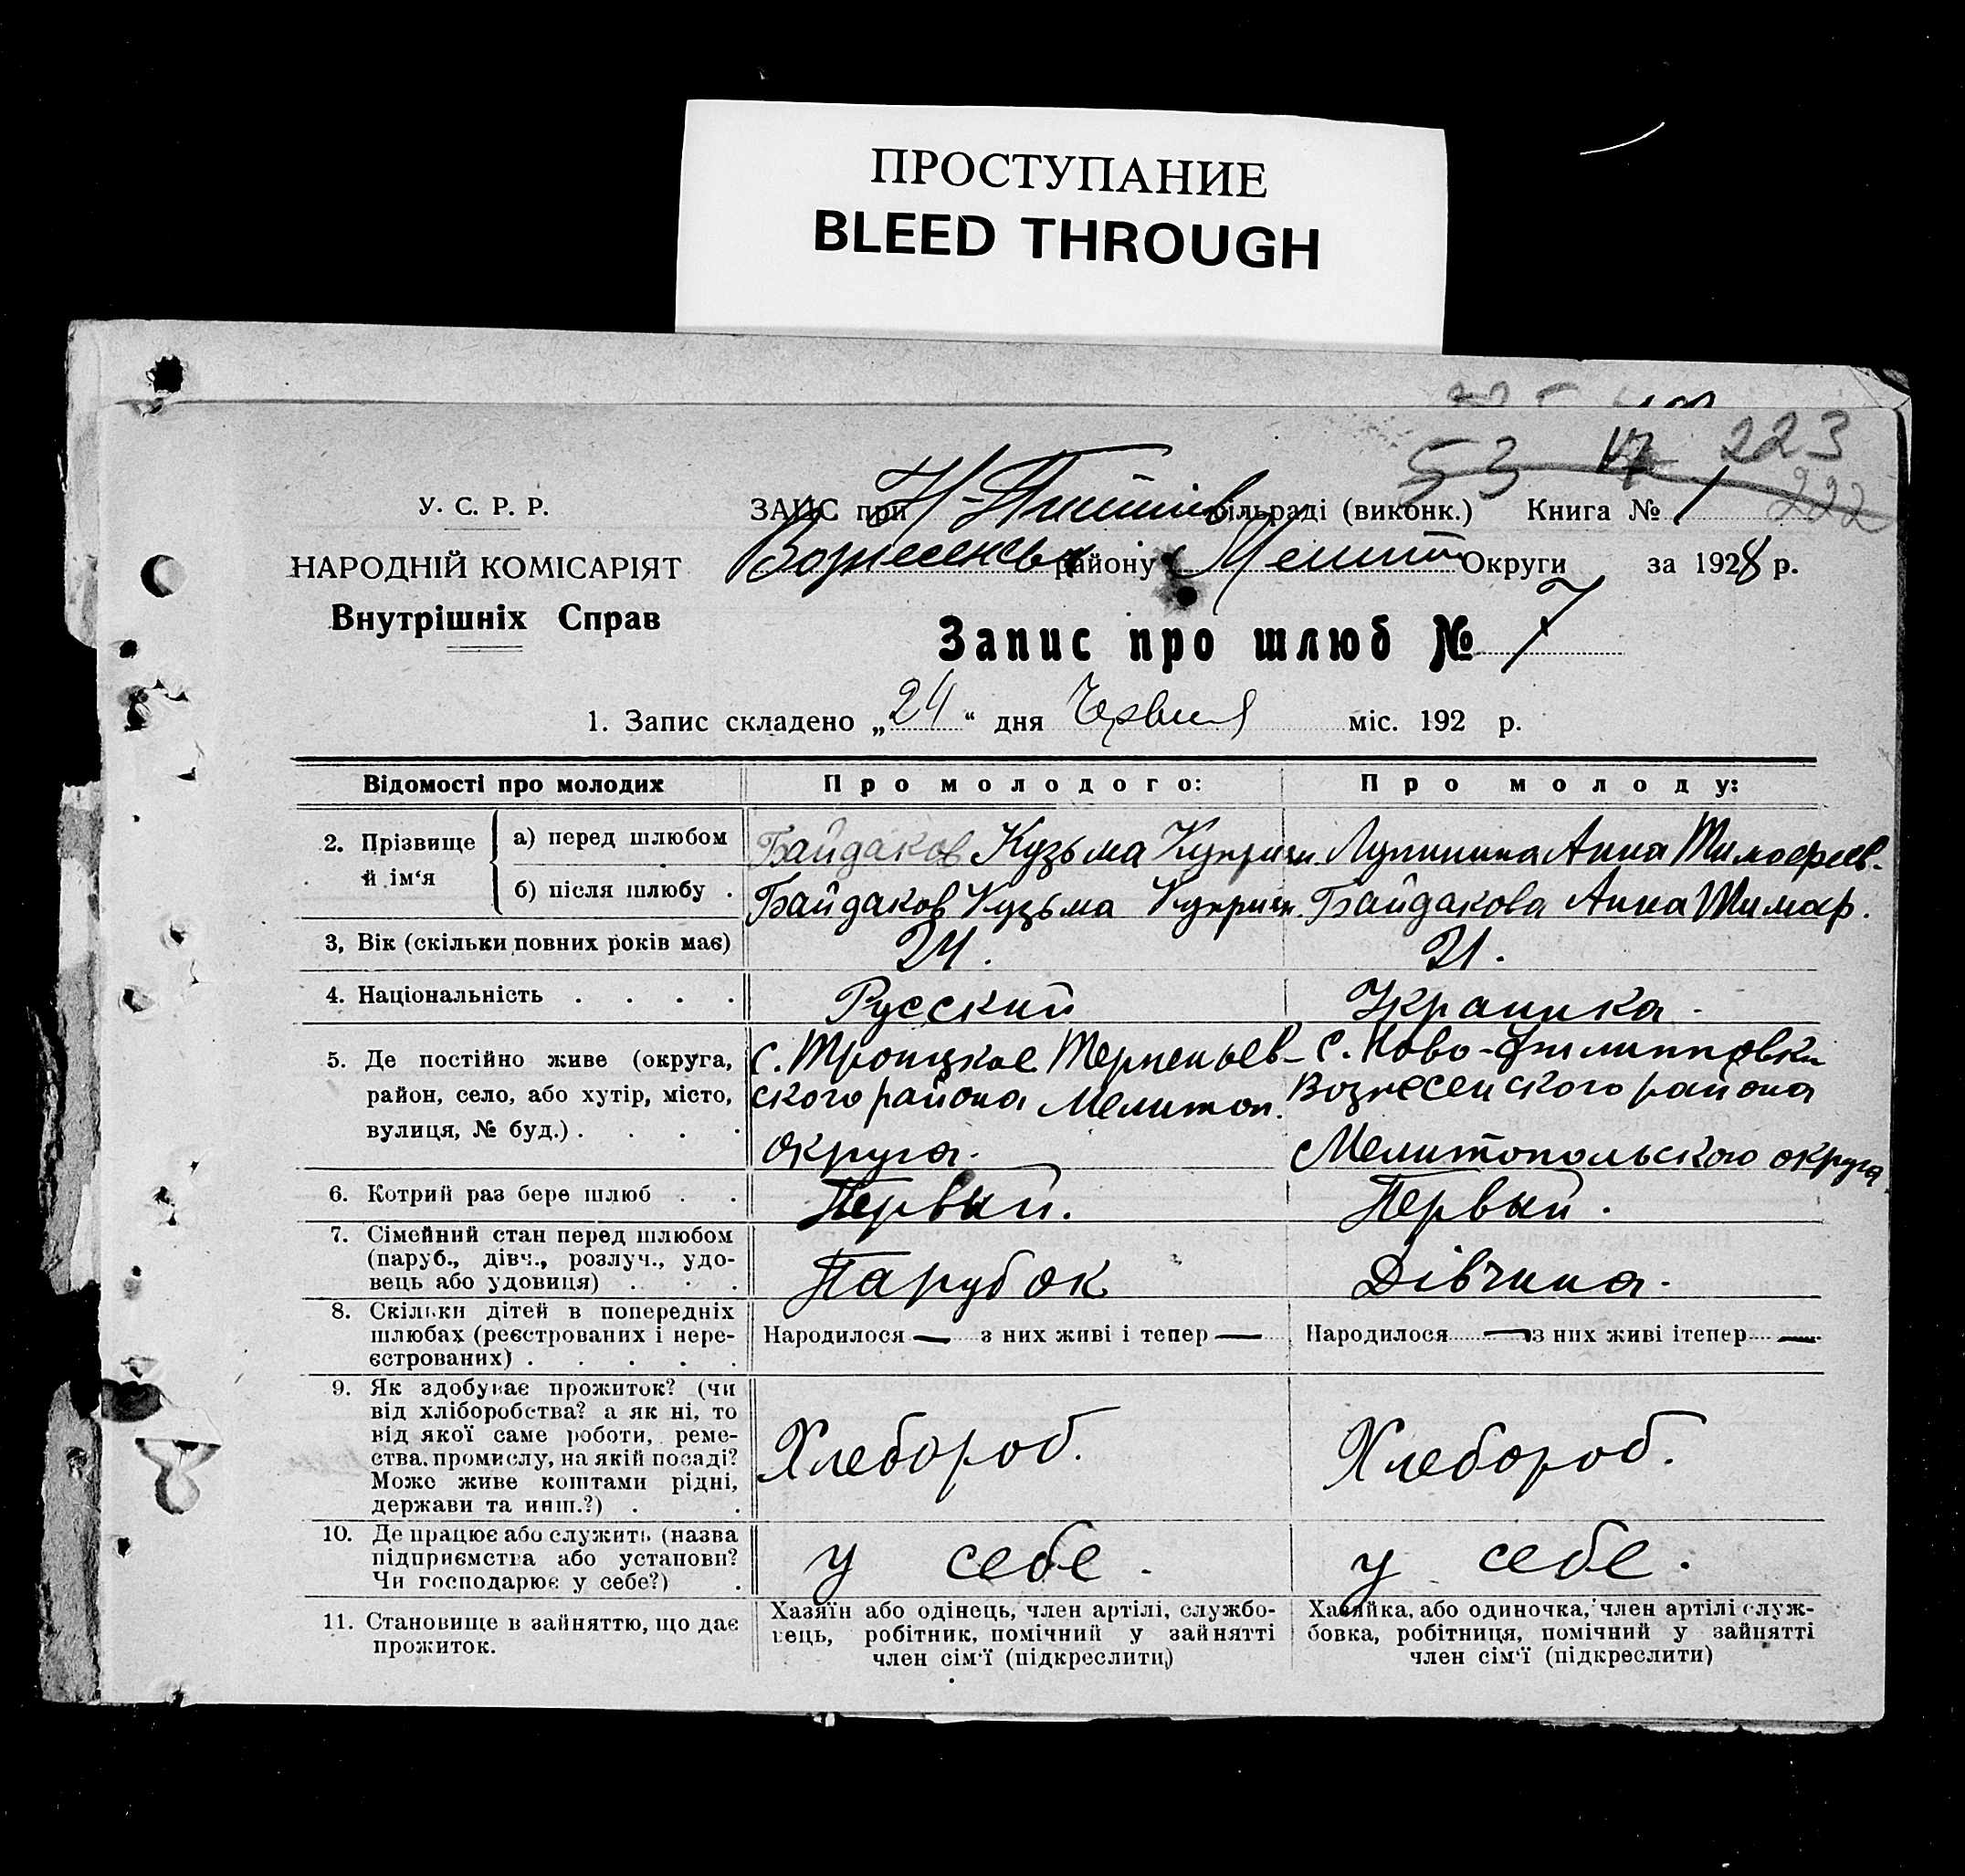 ПРОСТУПАНИЕ
BLEED THROUGH
53 17 223
222
У. С. Р. Р.
НАРОДНІЙ КОМІСАРІЯТ
Внутрішніх Справ
ЗАПИС при сільраді (виконк.) Книга № 1
Вознесенськ району Мелит Округи за 1928 р.
Запис про шлюб № 7
1. Запис складено „24“ дня Червня міс. 192 р.
Відомості про молодих
Про молодого:
Про молоду:
2. Прізвище й ім‘я
а) перед шлюбом
Байдаков Кузьма
Анна Тимофеев.
б) після шлюбу .
Байдаков Кузьма
Байдакова Анна Тимоф.
3, Вік (скільки повних років має)
24.
21.
4. Національність . . . .
Русский
Украинка.
5. Де постійно живе (округа,
район, село, або хутір, місто,
вулиця, № буд.) . . . .
с. Троицкое Терпеньев-
ского района Мелитоп.
округа.
с. Ново-Филипповки
Вознесенского района
Мелитопольского округа
6. Котрий раз бере шлюб . .
Первый.
Первый.
7. Сімейний стан перед шлюбом
(паруб., дівч., розлуч., удо-
вець або удовиця) . . .
Парубок
Дівчина.
8. Скільки дітей в попередніх
шлюбах (реєстрованих і нере-
єстрованих) . . . . .
Народилося — з них живі і тепер —
Народилося — з них живі ітепер —
9. Як здобуває прожиток? (чи
від хліборобства? а як ні, то
від якої саме роботи, реме-
ства, промислу, на якій посаді?
Може живе коштами рідні,
держави та инш.?) . .
Хлебороб.
Хлебороб.
10. Де працює або служить (назва
підприємства або установи?
Чи господарює у себе?) .
у себе.
у себе.
11. Становище в зайняттю, що дає
прожиток.
Хазяїн або одінець, член артілі, службо-
вець, робітник, помічний у зайнятті
член сім‘ї (підкреслити)
Хазяйка, або одиночка, член артілі служ-
бовка, робітниця, помічний у зайнятті
член сім‘ї (підкреслити)